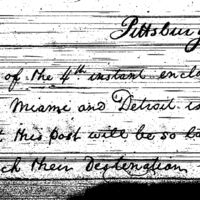 Pittsburg
of the 4th instant enclo
Miami and Detroit is
t this post will be so la
ch their destenation